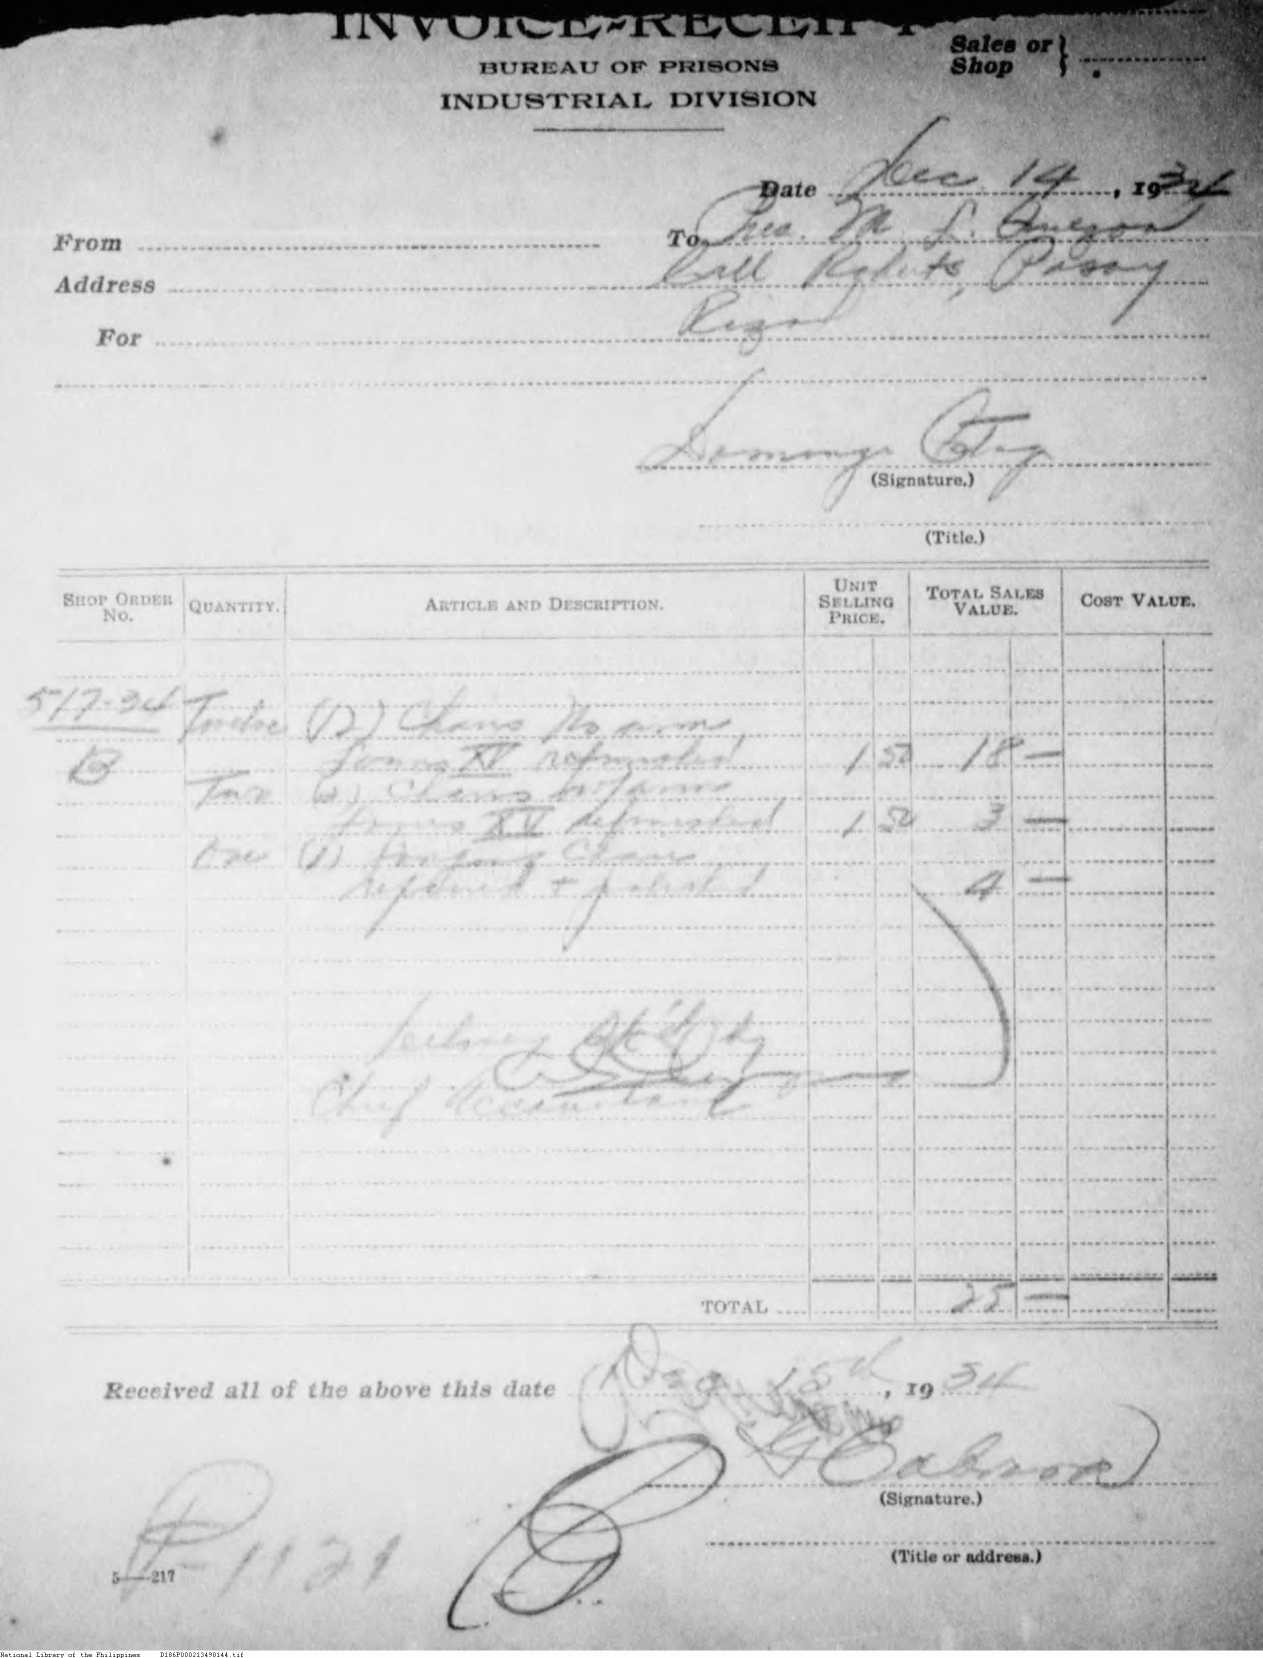 INVOICE-RECEIPT
Sales or
Shop
BUREAU OF PRISONS
INDUSTRIAL DIVISION
Date Dec 14, 1934
From To Pres. M. L. Quezon
Address Call Roberts, Pasay
For Rizal
Domingo
(Signature.)
(Title.)
SHOP ORDER No. QUANTITY. ARTICLE AND DESCRIPTION. UNIT SELLING PRICE. TOTAL SALES VALUE. COST VALUE.
517-34 Twelve (12) Chairs No arm
B Louis XV refinished 1 50 18 —
Two (2) Chairs w/arms
Louis XV refinished 1 50 3 —
One (1) Chair
repaired + polished 4 —
Chief Accountant
TOTAL 25 —
Received all of the above this date Dec 15th, 1934
(Signature.)
(Title or address.)
P-1129
5—217
National Library of the Philippines D186P000213498144.tif